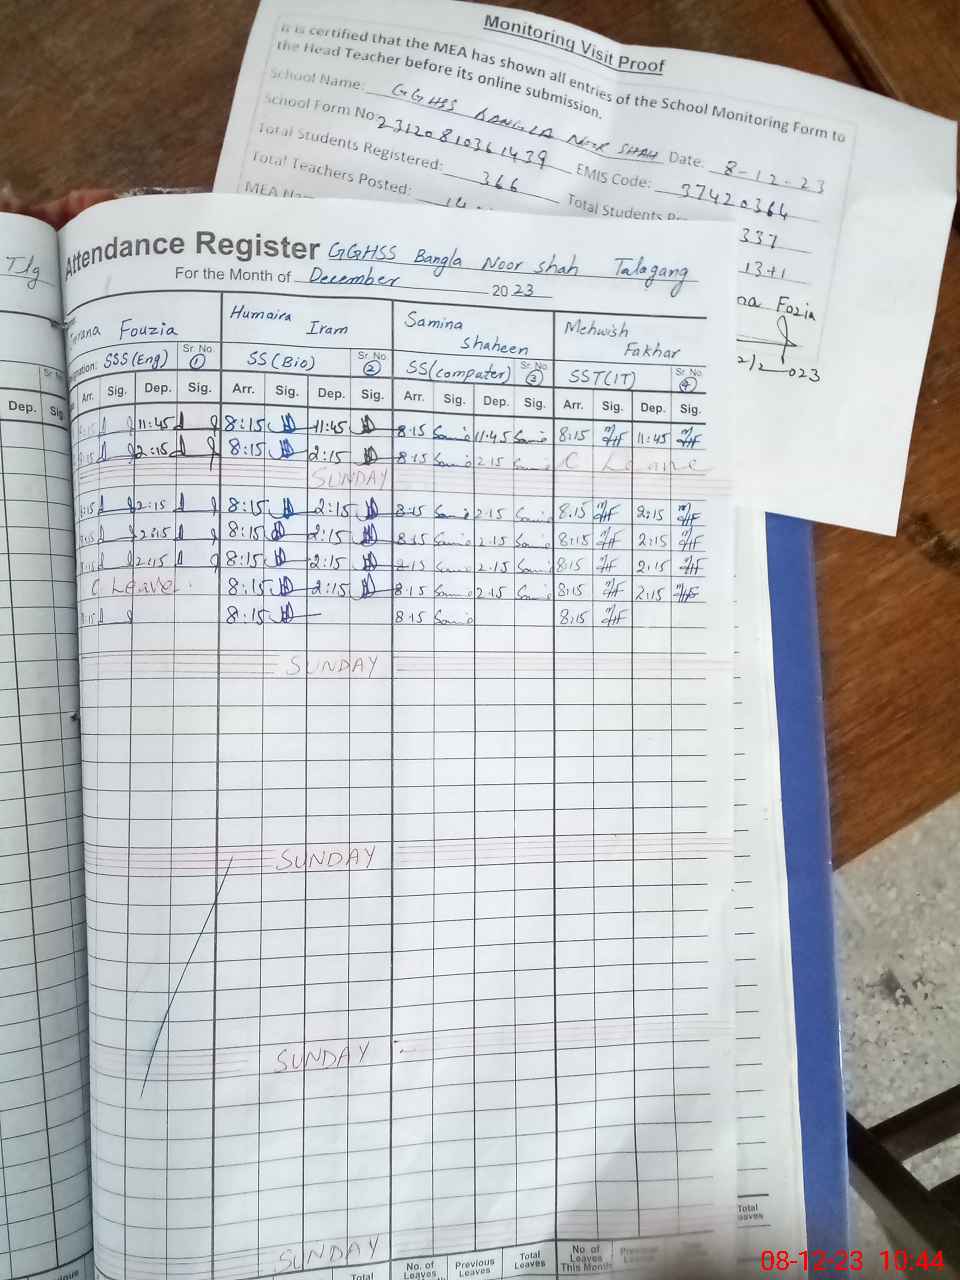 Monitoring Visit Proof
It is certified that the MEA has shown all entries of the School Monitoring Form to
the Head Teacher before its online submission.
School Name: GGHSS BANGLA NOOR SHAH Date: 8-12-23
School Form No: 23120810361439 EMIS Code: 37420364
Total Students Registered: 366 Total Students Pr 337
Total Teachers Posted: 14 13+1
MEA Na Fozia
Tlg
Attendance Register GGHSS Bangla Noor shah Talagang
For the Month of December 2023
Fouzia
Humaira Iram
Samina shaheen
Mehwish Fakhar
SSS (Eng) Sr. No. 1 SS (Bio) Sr. No. 2 SS (computer) Sr. No. 3 SST(IT) Sr. No. 4
Dep. Sig. Arr. Sig. Dep. Sig. Arr. Sig. Dep. Sig. Arr. Sig. Dep. Sig. Arr. Sig. Dep. Sig.
8:15 11:45 8:15 11:45 8:15 11:45 8:15 11:45
8:15 2:15 8:15 2:15 8:15 2:15 C Leave
SUNDAY
8:15 2:15 8:15 2:15 8:15 2:15 8:15 2:15
8:15 2:15 8:15 2:15 8:15 2:15 8:15 2:15
8:15 2:15 8:15 2:15 2:15 8:15 2:15
C Leave 8:15 2:15 8:15 2:15 8:15 2:15
8:15 8:15 8:15 8:15
SUNDAY
SUNDAY
SUNDAY
SUNDAY
Total
No. of Leaves
Previous Leaves
Total Leaves
No. of Leaves This Month
Previous
Total Leaves
08-12-23 10:44